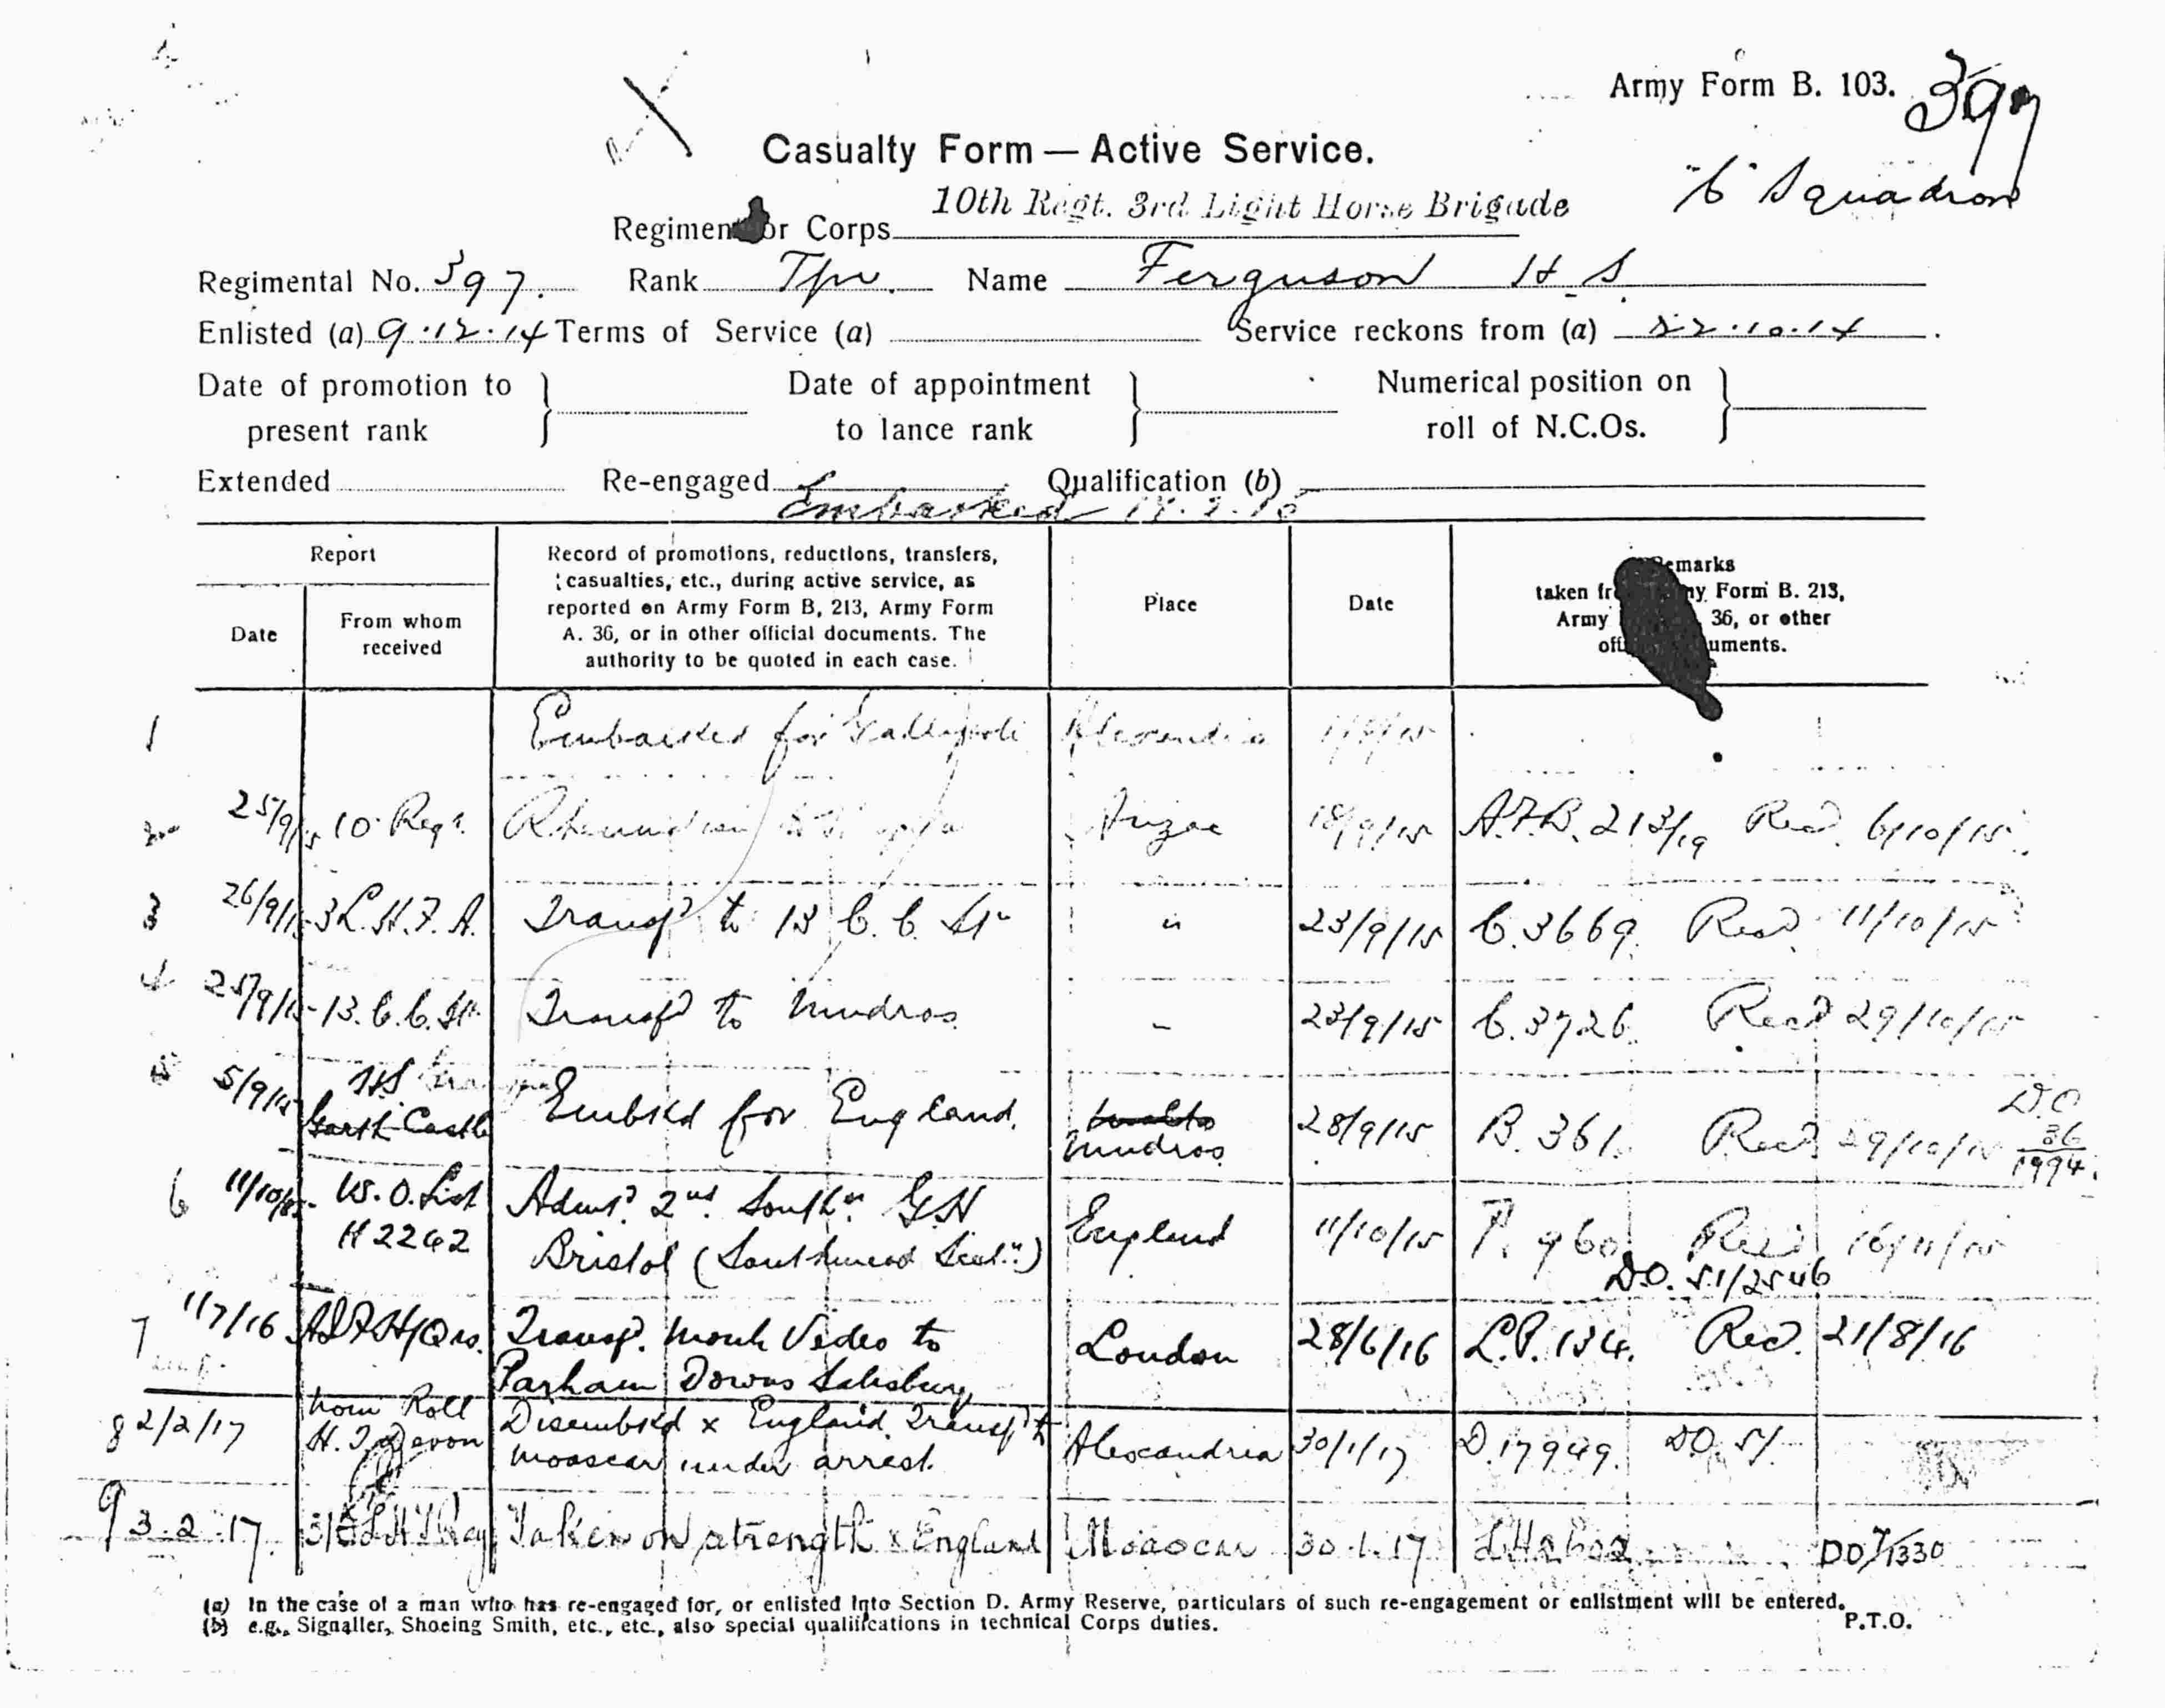 Army Form B. 103.
397
Casualty Form — Active Service.
Regiment or Corps 10th Regt. 3rd Light Horse Brigade
"C" Squadron
Regimental No. 397. Rank Tpr. Name Ferguson H. S.
Enlisted (a) 9.12.14 Terms of Service (a) Service reckons from (a) 22.10.14
Date of promotion to present rank
Date of appointment to lance rank
Numerical position on roll of N.C.Os.
Extended Re-engaged Qualification (b)
Embarked
Report
Date
From whom received
Record of promotions, reductions, transfers,
casualties, etc., during active service, as
reported on Army Form B, 213, Army Form
A. 36, or in other official documents. The
authority to be quoted in each case.
Place
Date
Remarks
taken from Army Form B. 213,
Army 36, or other
official documents.
1 Embarked for Gallipoli Alexandria
25/9/15 10 Regt. Anzac 18/9/15 A.F.B. 213/19 Recd. 6/10/15
3 26/9/15 3 L.H.F.A. Transfd to 13 C. C. Stn " 23/9/15 C.3669. Recd 11/10/15
4 25/9/15 13. C.C. Stn Transfd to Mudros – 23/9/15 C.3726. Recd 29/10/15
5 5/9/15 H.S.
Garth Castle Embkd for England. Malta
Mudros 28/9/15 B. 361. Recd 29/10/15 D.O
36
1994
6 11/10/15 W.O. List
H 2262 Admd. 2nd. Southn. G.H
Bristol (Southmead Sectn.) England 11/10/15 P. 960 Recd. 16/11/15
D.O. 51/2546
7 1/7/16 AIF H/Qrs. Transfd. Monte Video to
Parham Downs Salisbury London 28/6/16 L.P. 134. Recd. 21/8/16
8 2/2/17 Nom Roll
H.T. Devon Disembkd x England. Transfd to
Moascar under arrest. Alexandria 30/1/17 D.17949. DO. 51
9 3.2.17. Taken on strength x England Moascar 30.1.17 DO 7/1330
(a) In the case of a man who has re-engaged for, or enlisted into Section D. Army Reserve, particulars of such re-engagement or enlistment will be entered.
(b) e.g., Signaller, Shoeing Smith, etc., etc., also special qualifications in technical Corps duties.
P.T.O.